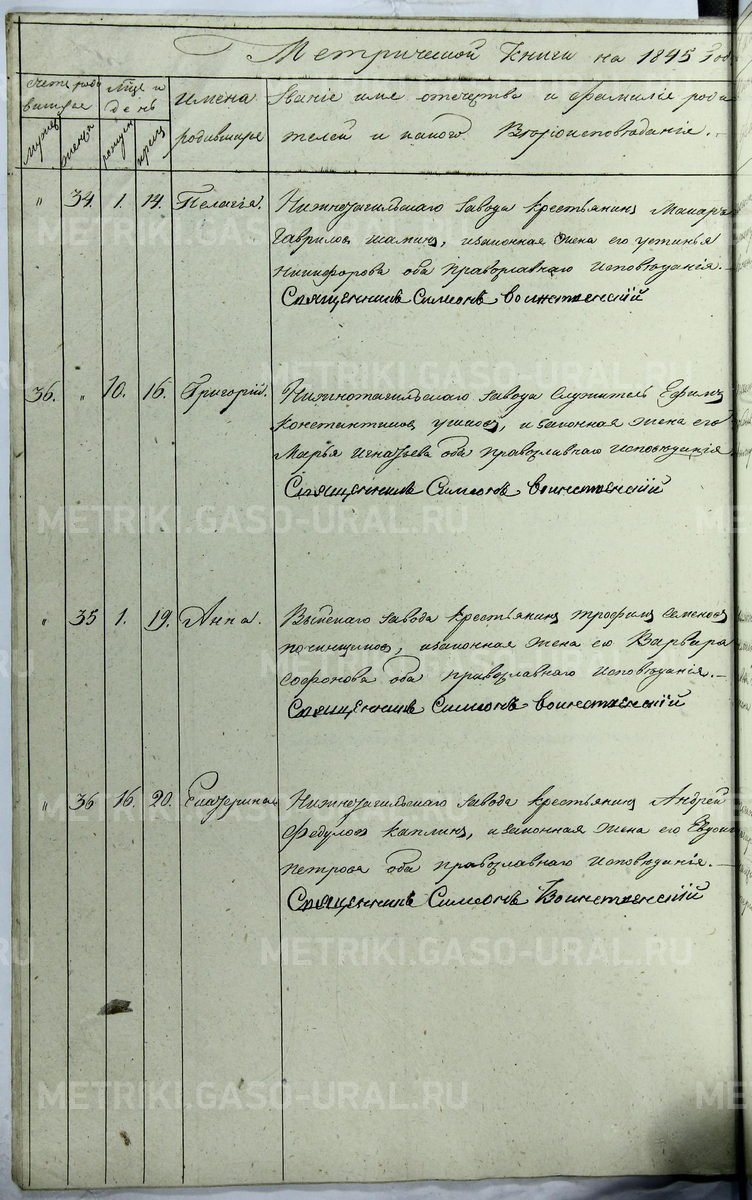 Метрической Книги на 1845 Год
счетъ роди вшихся
Мѣсяцъ и день
Имена родившихся
Званіе имя отечество и фамиліе роди
телей и какого Вѣроисповѣданія.
мужеск женск рожден крещ
" 34. 1. 14. Пелагія. Нижнетагильскаго завода крестьянинъ Макаръ
Гавриловъ шаминъ, изаконная жена его устинья
Никифорова оба православнаго исповѣданія.
Священникъ Симеонъ Воинственскій
36. " 10. 16. Григорій. Нижнотагильскаго завода служитель Ефимъ
Константиновъ ушковъ, изаконная жена его
Марья игнатьева оба православнаго исповѣданія
Священникъ Симеонъ Воинственскій
" 35 1. 19. Анна. Выйскаго завода крестьянинъ трофимъ семеновъ
починщиковъ, изаконная жена его Варвара
софронова оба православнаго исповѣданія.
Священникъ Симеонъ Воинственскій
" 36 16. 20. Екатерина Нижнетагильскаго завода крестьянинъ Андрей
Федуловъ каплинъ, изаконная жена его Евдокия
петрова оба православнаго исповѣданія.
Священникъ Симеонъ Воинственскій
METRIKI.GASO-URAL.RU